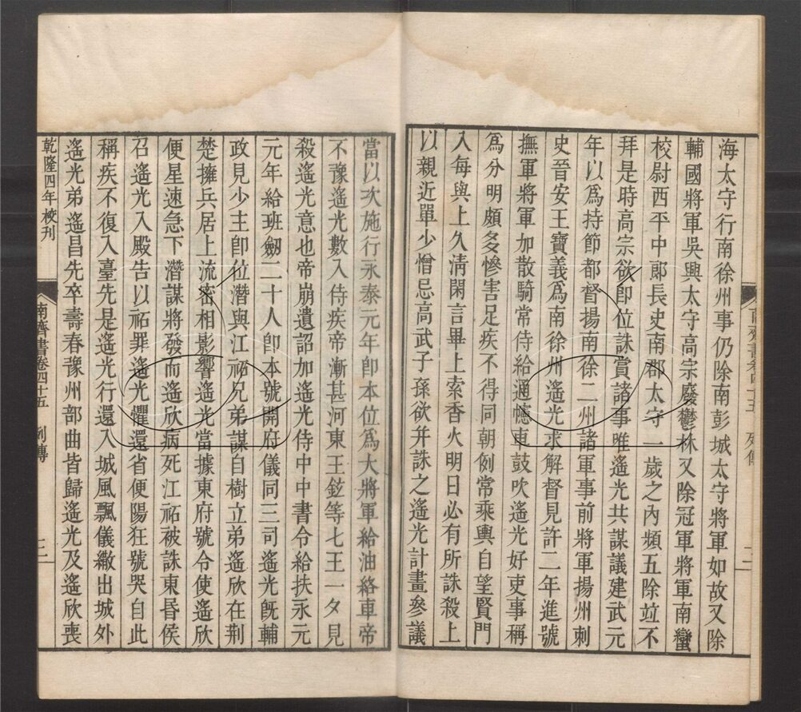 海太守行南徐州事仍除南彭城太守將軍如故又除
輔國將軍吳興太守高宗廢鬱林又除冠軍將軍南蠻
校尉西平中郞長史南郡太守一歲之內頻五除竝不
拜是時高宗欲卽位誅賞諸事唯遙光共謀議建武元
年以爲持節都督揚南徐二州諸軍事前將軍揚州刺
史晉安王寶義爲南徐州遙光求解督見許二年進號
撫軍將軍加散騎常侍給通幰車鼓吹遙光好吏事稱
爲分明頗多慘害足疾不得同朝例常乘輿自望賢門
入每與上久淸閑言畢上索香火明日必有所誅殺上
以親近單少憎忌高武子孫欲幷誅之遙光計畫參議
當以次施行永泰元年卽本位爲大將軍給油絡車帝
不豫遙光數入侍疾帝漸甚河東王鉉等七王一夕見
殺遙光意也帝崩遺詔加遙光侍中中書令給扶永元
元年給班劒二十人卽本號開府儀同三司遙光旣輔
政見少主卽位潛與江祏兄弟謀自樹立弟遙欣在荆
楚擁兵居上流密相影響遙光當據東府號令使遙欣
便星速急下潛謀將發而遙欣病死江祏被誅東昏侯
召遙光入殿告以祏罪遙光懼還省便陽狂號哭自此
稱疾不復入臺先是遙光行還入城風飄儀繖出城外
遙光弟遙昌先卒壽春豫州部曲皆歸遙光及遙欣喪
乾隆四年校刊
南齊書卷四十五 列傳